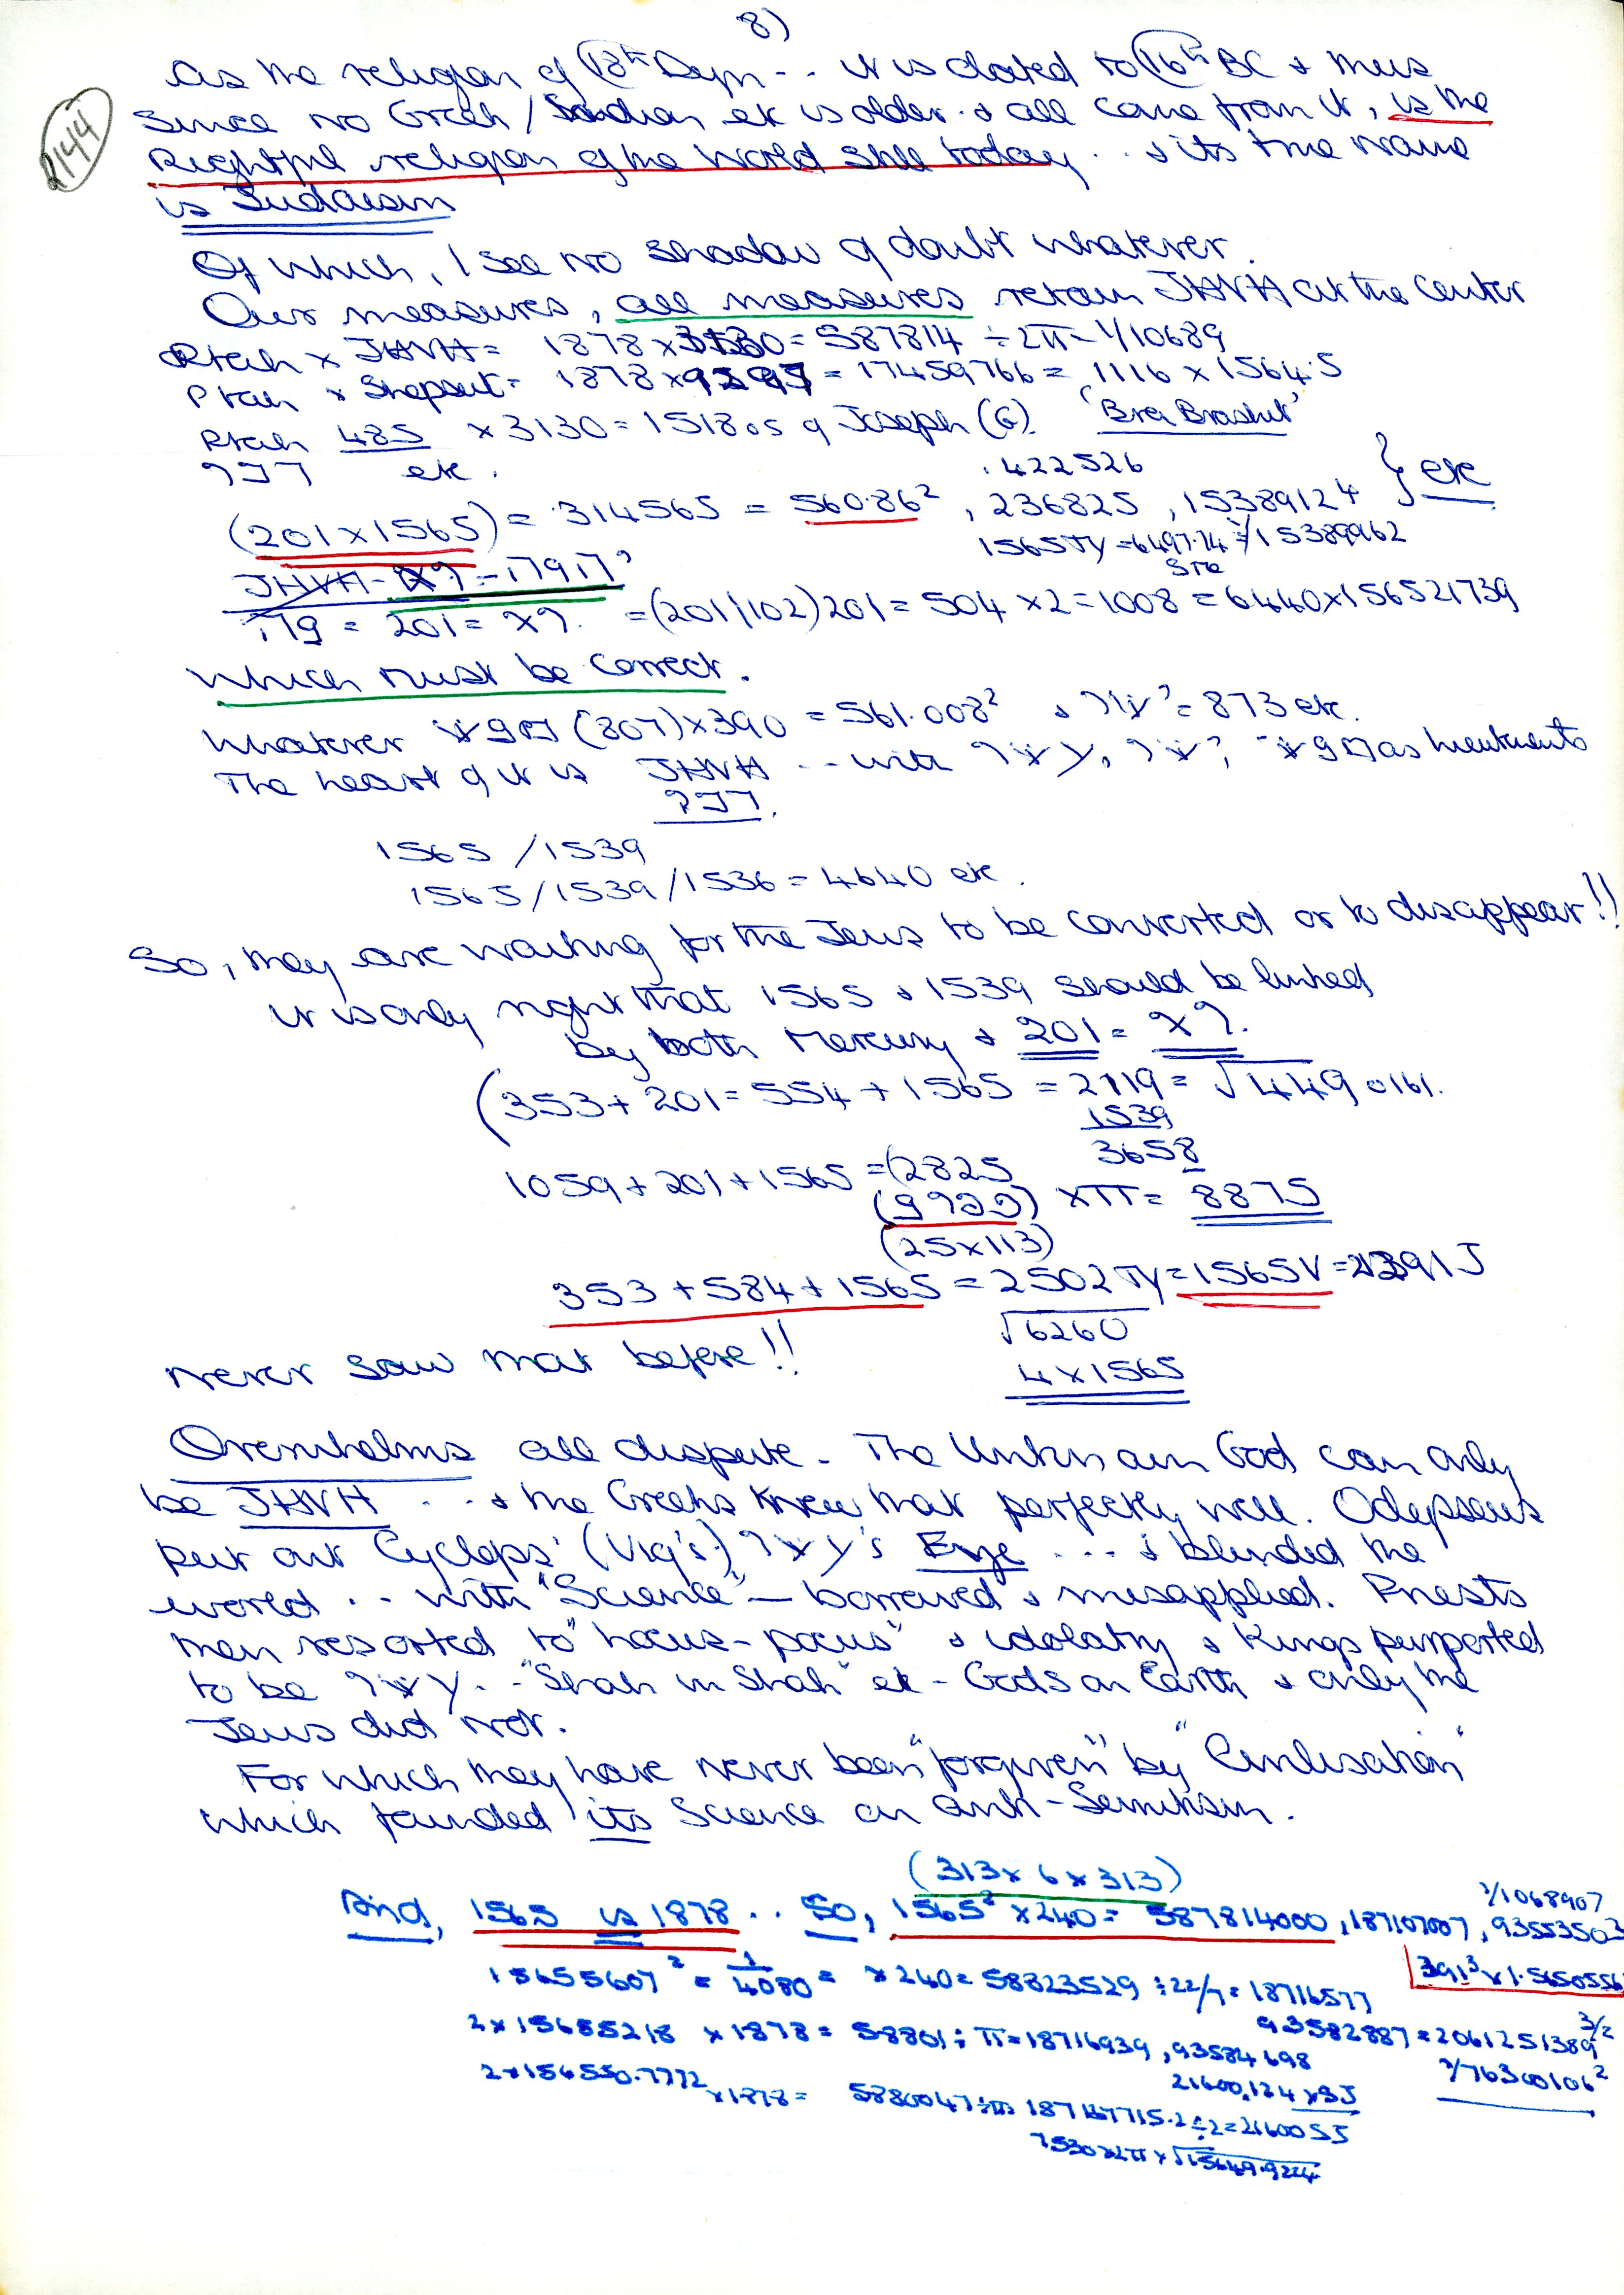 8)
2144
As the religion of 18th Dyn -.. it is dated to 16th BC & thus
Since no Greek / Indian etc is older & all came from it, is the
Rightful religion of the World still today .. & its true name
is Judaism
Of which, I see no shadow of doubt whatever.
Our measures, all measures retain JHVH at the center
Ptah x JHVH = 1878 x 3130 = 587814 ÷ 2π = 1/10689
Ptah x Shepsut = 1878 x 9297 = 17459766 = 1116 x 1564.5
Ptah 485 x 3130 = 151805 of Joseph (G). 'Brei Brashit'
etc. .422526
(201 x 1565) = 314565 = 560.86², 236825, 15389124 } etc
1565 TY = 6497.74 1/15389962
= (201/102) 201 = 504 x 2 = 1008 = 6440 x 156521739
Which must be correct.
Whatever (807) x 390 = 561.008² & = 873 etc.
The heart of it is JHVH .. with
1565 / 1539
1565 / 1539 / 1536 = 4640 etc.
So, they are waiting for the Jews to be converted or to disappear!!
It is only right that 1565 & 1539 should be linked
by both Mercury & 201 =
(353 + 201 = 554 + 1565 = 2119 = √4490161.
1539
3658
1059 + 201 + 1565 = (2825
x π = 8875
(25 x 113)
353 + 584 + 1565 = 2502 TY = 1565 V = 2391 J
√6260
4 x 1565
Never saw that before!!
Overwhelms all dispute. The Unknown God can only
be JHVH ... & the Greeks knew that perfectly well. Odysseus
put out Cyclops' 's Eye ... & blinded the
world .. with "Science" – borrowed & misapplied. Priests
then resorted to "hocus-pocus" & idolatry & Kings purported
to be .. "Shah in Shah" etc - Gods on Earth & only the
Jews did not.
For which they have never been "forgiven" by "Civilisation"
which founded its Science on anti-Semitism.
(313 x 6 x 313)
And, 1565 is 1878 .. So, 1565² x 240 = 587814000, 187107007, 93553503
1/1068907
391³ x 1.5650556
15655607² = 1/4080 = x 240 = 58823529 ÷ 22/7 = 18716577
2 x 15655218 x 1878 = 58801 ÷ π = 18716939, 93584698
93582887 = 2061251389 3/2
1/76300106²
21600.124 x 3J
2 x 156550.7772 x 1878 = 5880047 ÷ π 187167715.2 ÷ 2 = 2160055
7530 x 2π x √15649.9224